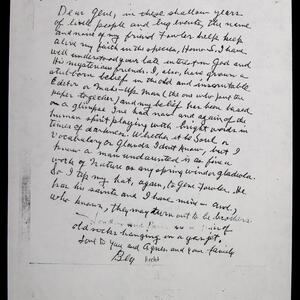 Dear Gene, in these shallow years
of little people and big events, the name
and news of my friend Fowler helps keep
alive my faith in the species, Homo S. I have
well understood your late interest in God and
His mysterious friends. I, also, have grown a
stubborn belief in the old and inscrutable
Editor or Make-up Man (the one who puts the
paper together) and my belief has been based
on a glimpse I've had now and again of the
human spirit playing with bright words in
times of darkness. Whether it be Soul or
Vocabulary or Glands I don't know, but
know a man undaunted is as fine a
work of Nature as any spring wind or gladiola.
So I tip my hat, again, to Gene Fowler. He
has his saints and I have mine and,
who knows, they may turn out to be brothers.
of
old rocks hanging on a
Love to you and Agnes and your family
Ben Hecht